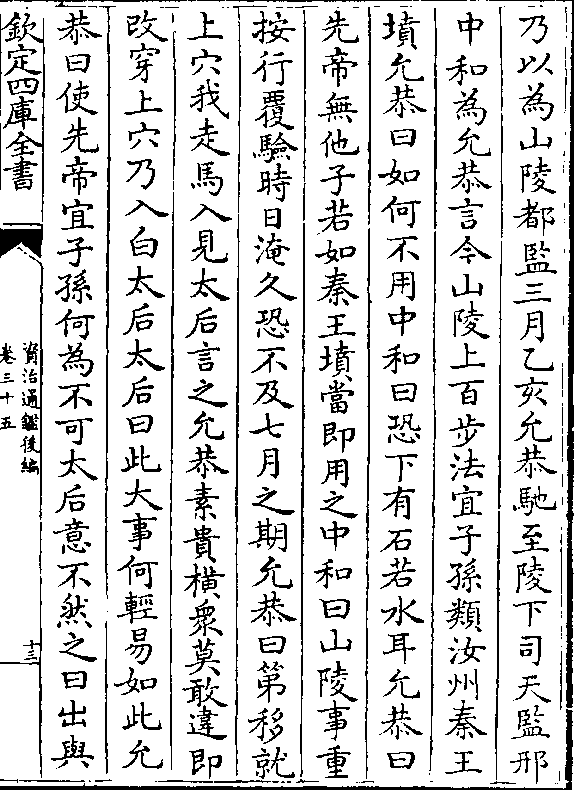 乃以為山陵都監三月乙亥允恭馳至陵下司天監邢
中和為允恭言今山陵上百步法宜子孫類汝州秦王
墳允恭曰如何不用中和曰恐下有石若水耳允恭曰
先帝無他子若如秦王墳當即用之中和曰山陵事重
按行覆驗時日淹久恐不及七月之期允恭曰第移就
上穴我走馬入見太后言之允恭素貴橫衆莫敢違即
改穿上穴乃入白太后太后曰此大事何輕易如此允
恭曰使先帝宜子孫何為不可太后意不然之曰出與
欽定四庫全書
資治通鑑後編
卷三十五
十三